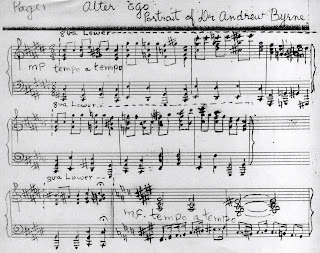 Page 1 Alter Ego
Portrait of Dr Andrew Byrne
8va Lower
mp tempo a tempo
8va Lower
8va Lower
mf. tempo a tempo